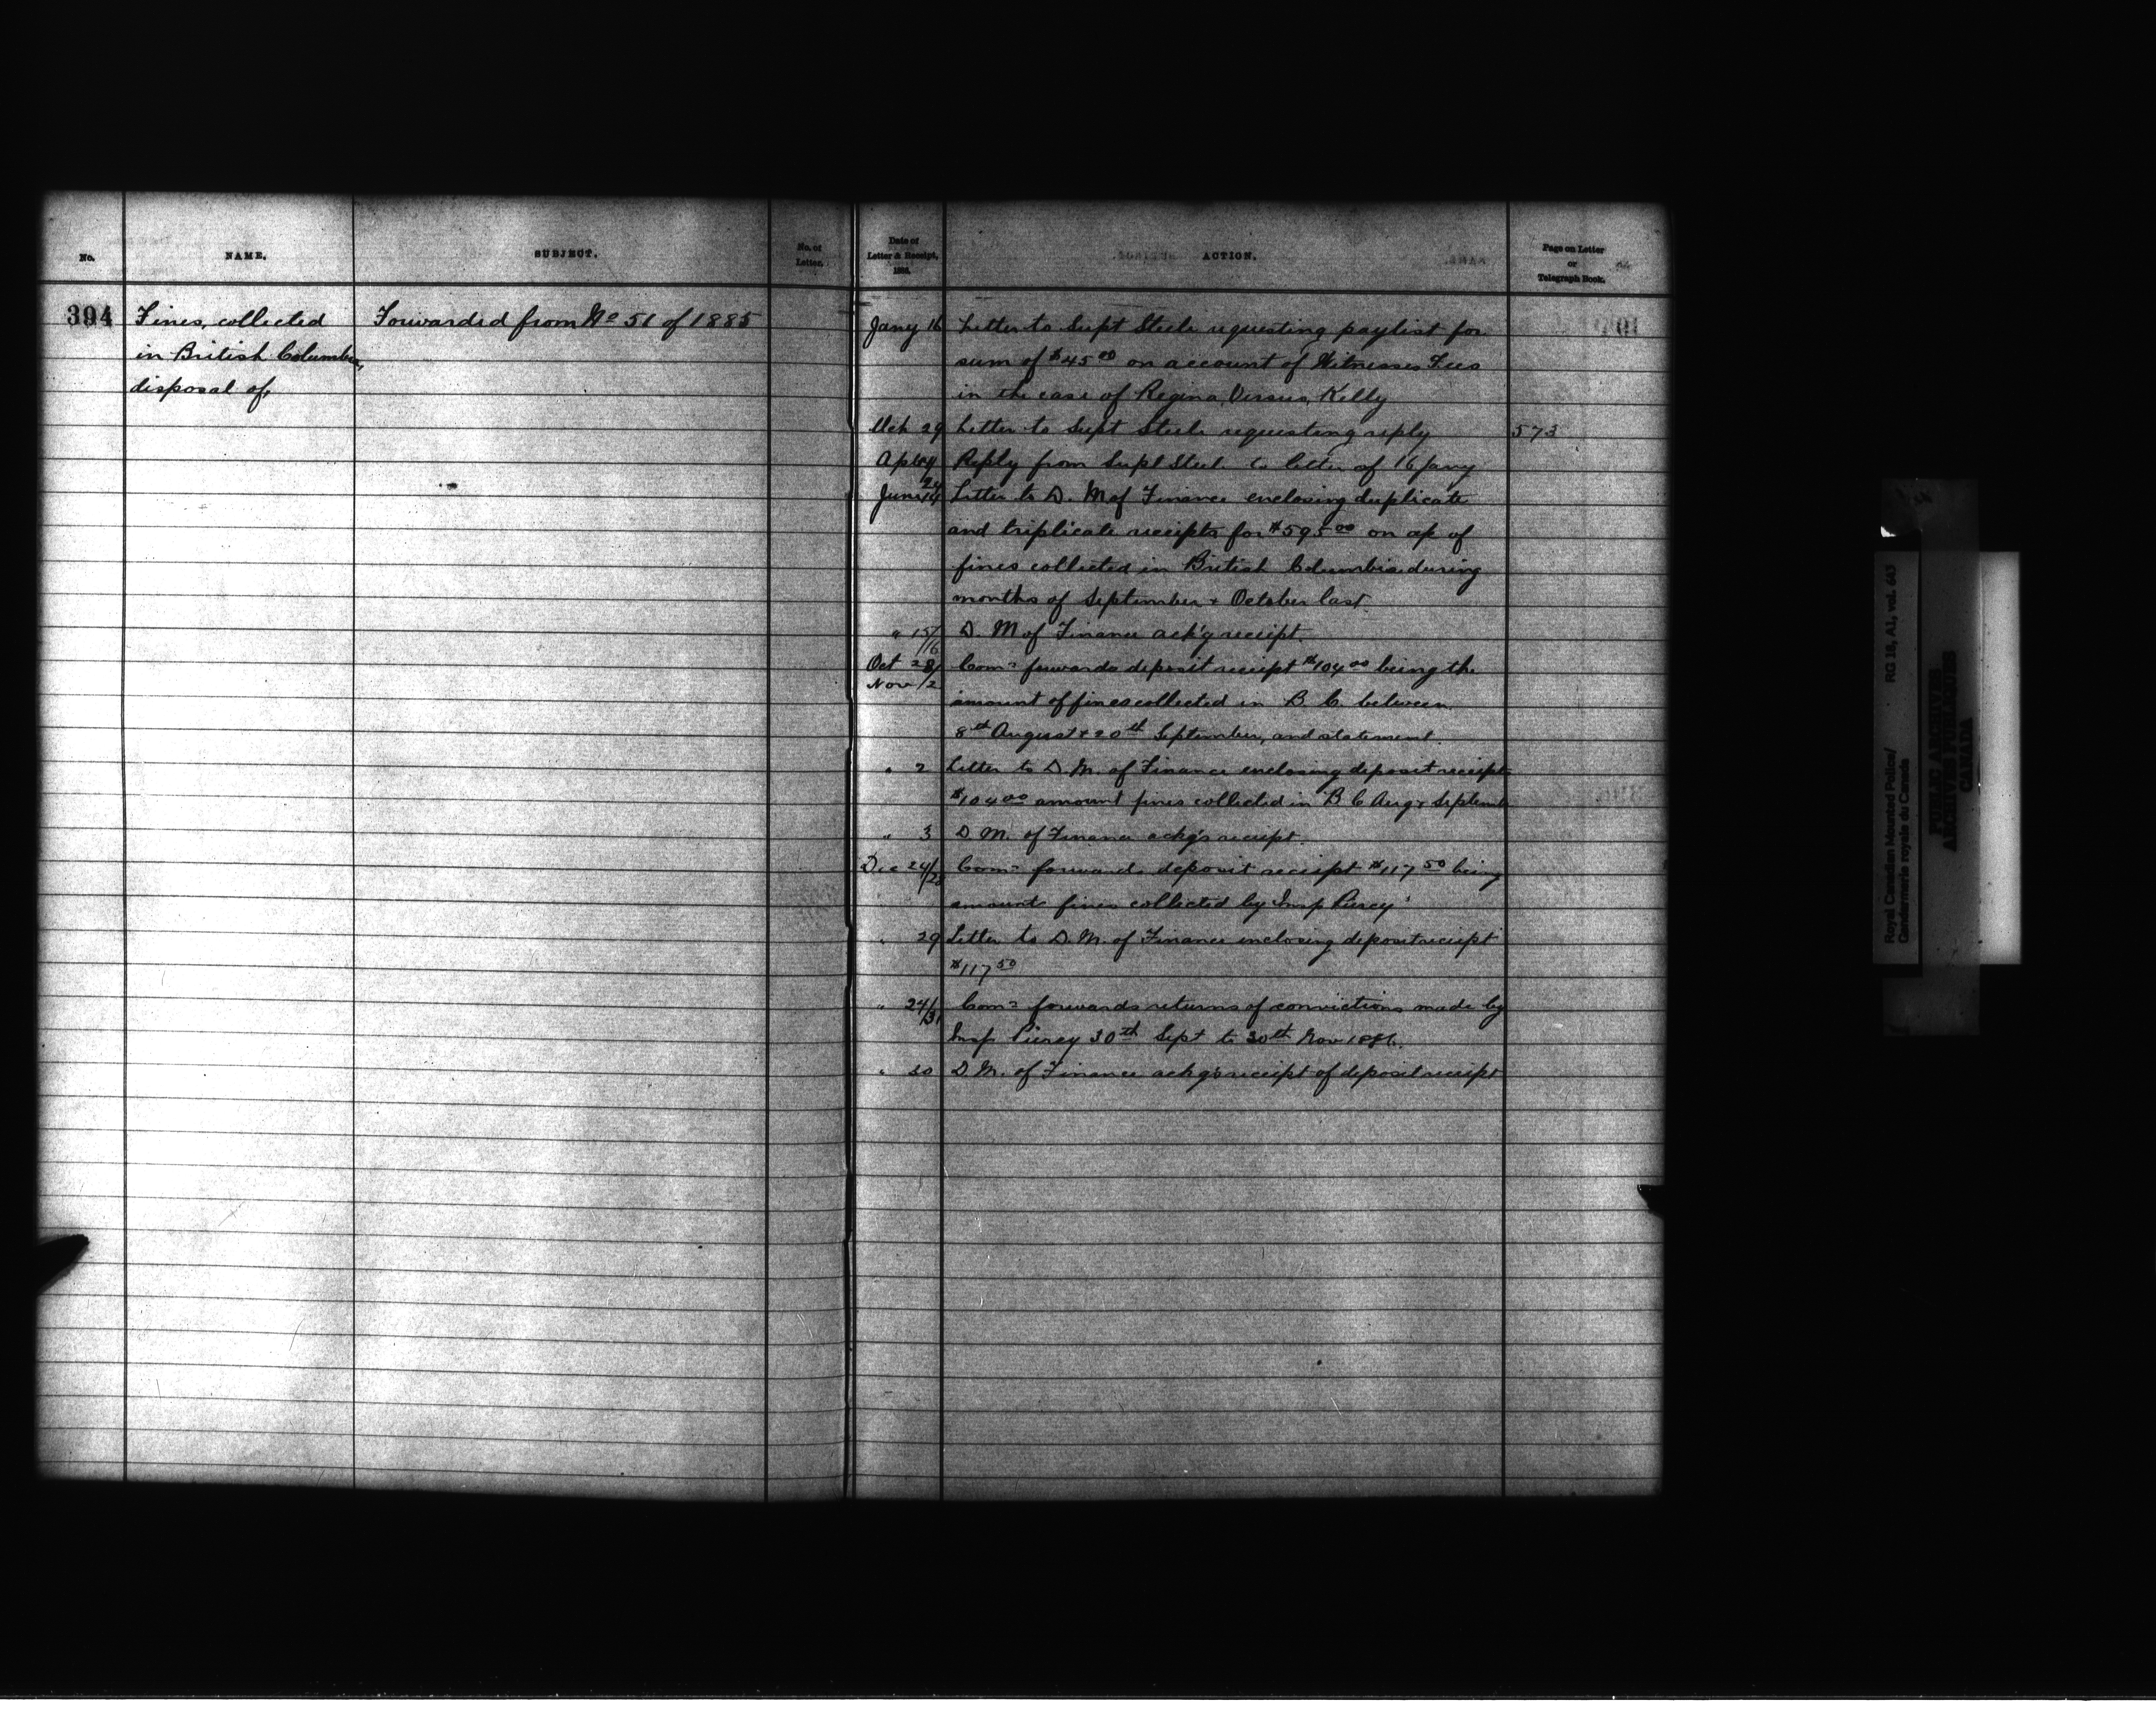 No.
NAME.
SUBJECT.
No. of
Letter.
Date of
Letter & Receipt,
1886.
ACTION.
Page on Letter
or
Telegraph Book.
394
Fines, collected
in British Columbia,
disposal of,
Forwarded from No 51 of 1885
Jany 16 Letter to Supt Steele requesting paylist for
sum of $45 00 on account of Witnesses Fees
in the case of Regina, Versus, Kelly
Mch 29 Letter to Supt Steele requesting reply 573
Reply from Supt Steele to letter of 16 Jany
June 14 Letter to D. M of Finance enclosing duplicate
and triplicate receipts for $595 00 on a/c of
fines collected in British Columbia during
months of September + October last.
" 15/16 D. M of Finance ack'g receipt.
Oct 28/ Comr forwards deposit receipt $104 00 being the
Nov /2
amount of fines collected in B. C. between
8th August & 20th September, and statement.
" 2 Letter to D. M. of Finance enclosing deposit receipt
$104 00 amount fines collected in B C Aug & Septemb
" 3 D. M. of Finance ackg's receipt.
Dec 24/28 Comr forwards deposit receipt $117 50 being
amount fines collected by Insp Piercy
" 29 Letter to D. M. of Finance enclosing deposit receipt
$117 50
" 24/31 Comr forwards returns of convictions made by
Insp Piercy 30th Sept to 30th Nov 1886.
" 30 D. M. of Finance ackg's receipt of deposit receipt
Royal Canadian Mounted Police/
Gendarmerie royale du Canada
RG 18, A1, vol. 643
PUBLIC ARCHIVES
ARCHIVES PUBLIQUES
CANADA